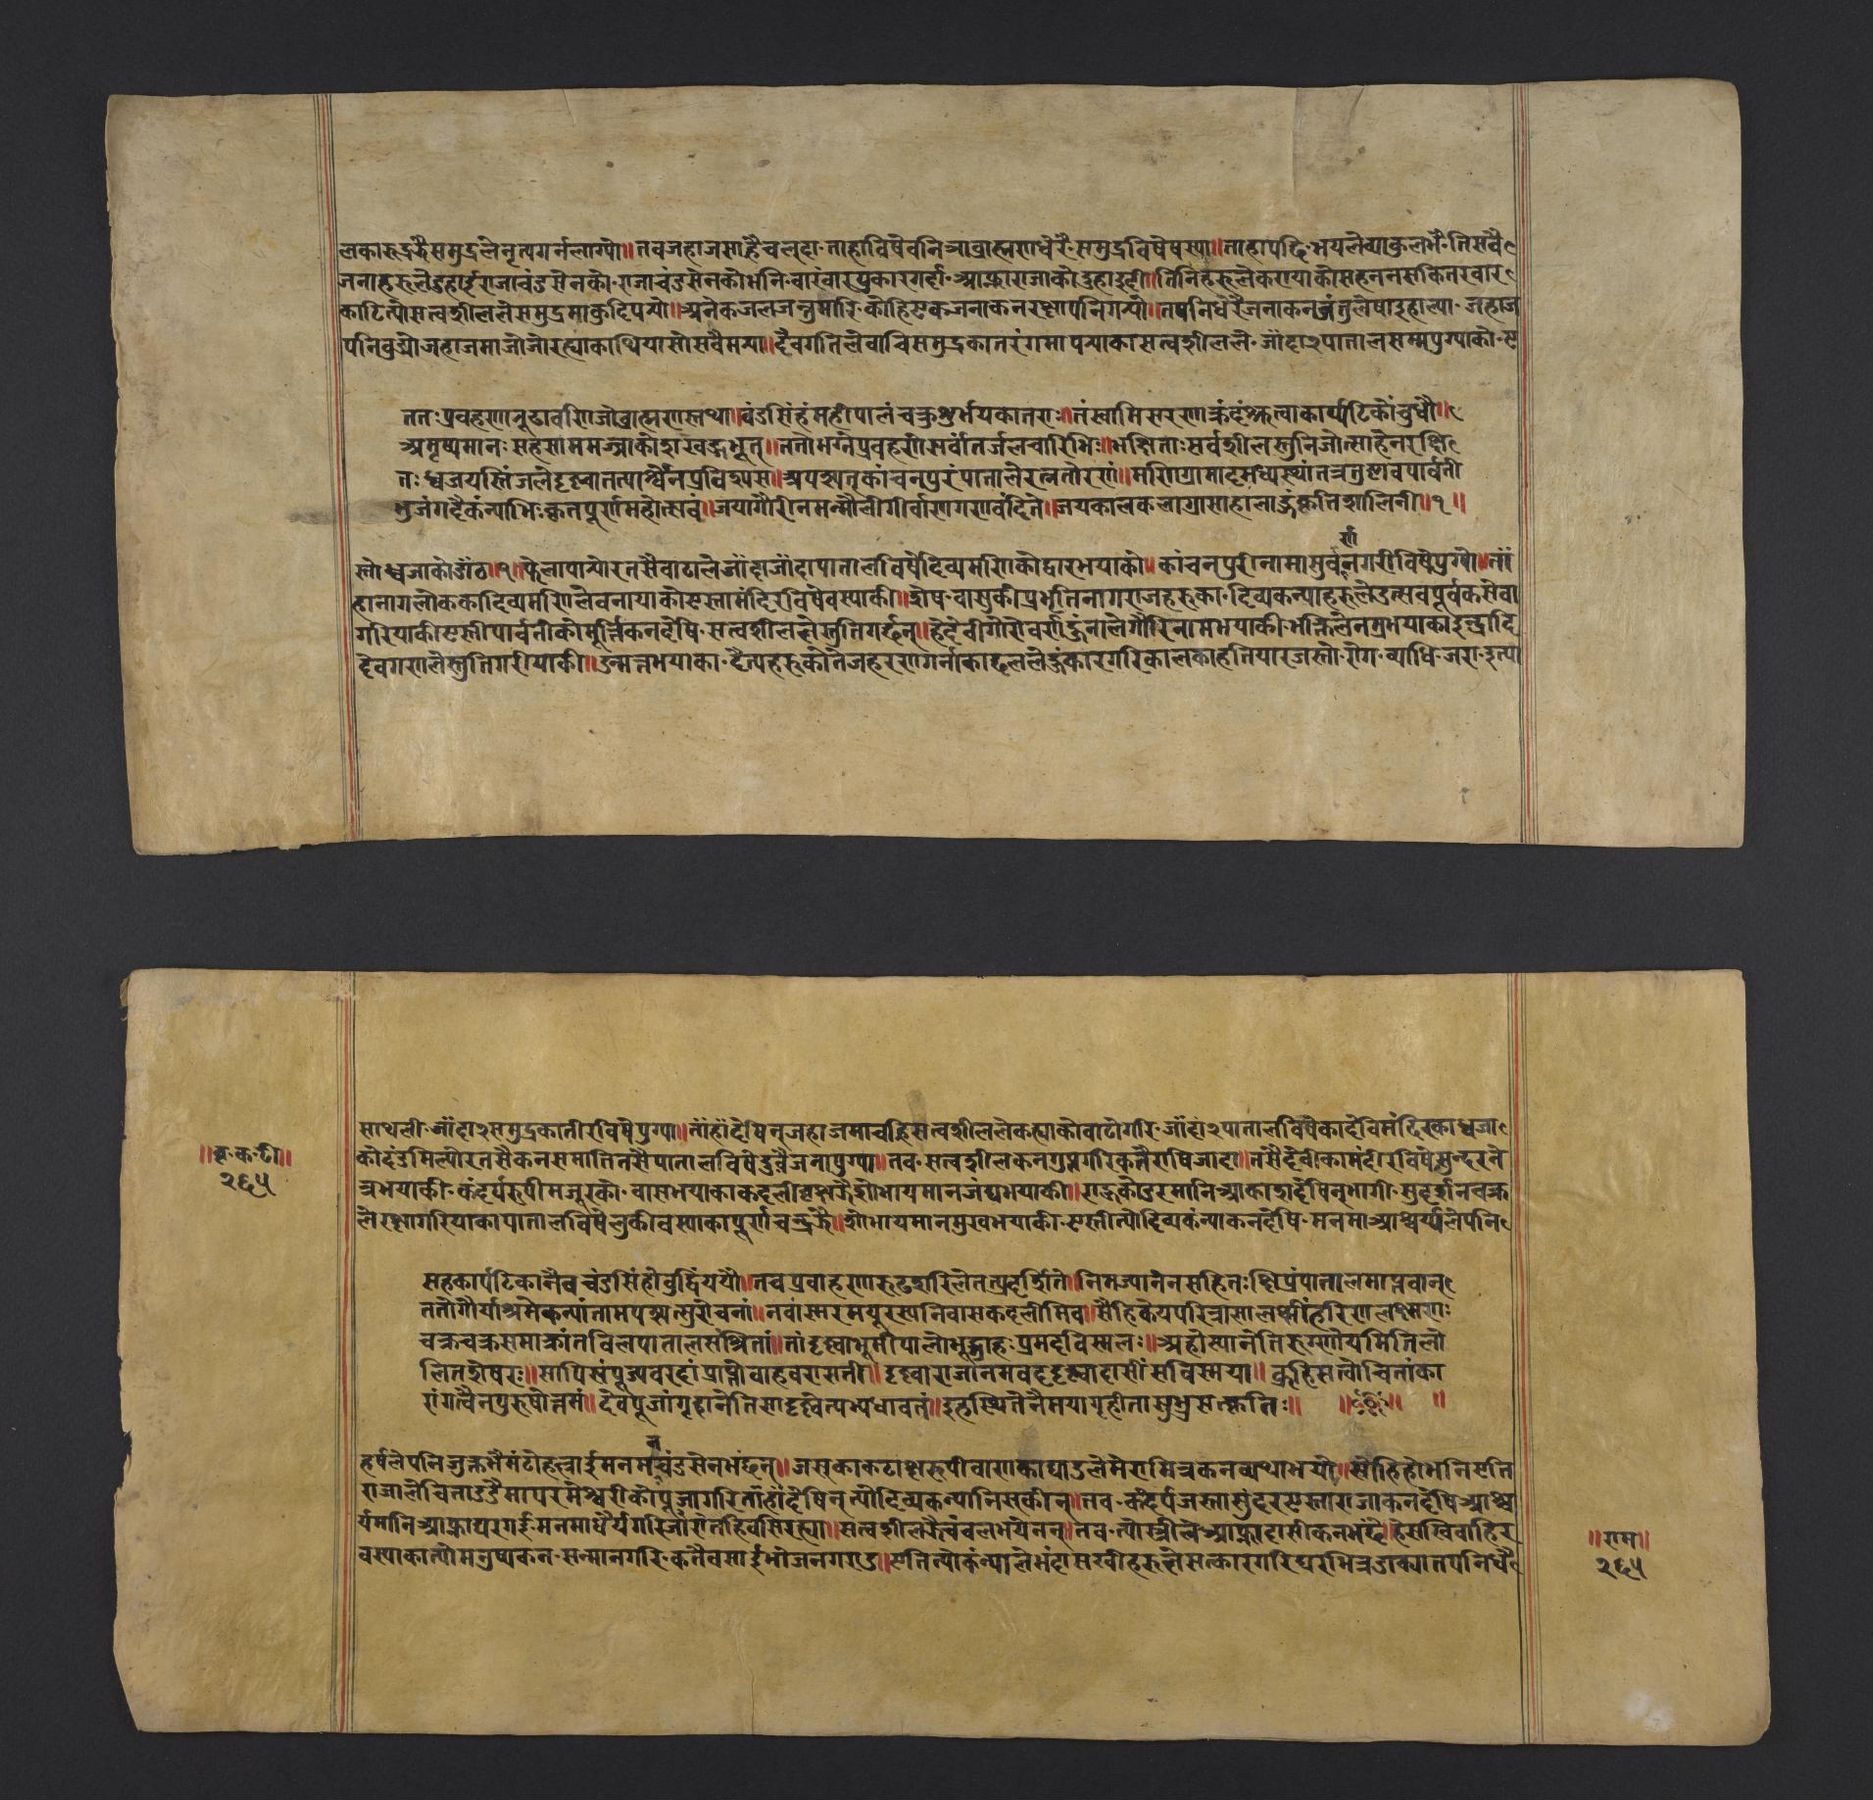 लकारुद्रझैसमुद्रलेनृत्यगर्नलाग्यो॥तवजहाजसाहैचलूदा·ताहाविषेवनिञाव्राह्मणाधेरै·समुद्रविषेषस्या॥ताहापछि·भयलेव्याकुलभै·तिसवै
जनाहरुलेडहाईराजाचंडसेनको·राजाचंडसेनकोभनि·वारंवारपुकारगर्दा·आफ्नाराजाकोदुहाइदी॥तिनिहरुलेकरायाकोसहननसकितरवार
काटित्योसत्वशीललेसमुद्रमाकुदिपऱ्यो॥अनेकजलजन्तुमारि·कोहिएकजनाकनरक्षापनिगऱ्यो॥तषनिधेरैजनाकनजंतुलेषाइहाल्या·जहाज
पनिवुड्योजहाजमाजोजोरह्याकाथियासोसवैमऱ्या॥दैवगतिलेवाचिसमुद्रकातरंगमापऱ्याकासत्वशीलले·जाँदा२पातालसम्मपुग्याको·ए
ततःप्रवहणानुदावणिजोव्राह्मणास्तथा॥चंडसिंहंमहीपालंचक्रुशुर्भयकातराः॥तंस्वामिसरणाक्रंदंश्रुत्वाकार्पटिकोंवुधौ॥
अमृष्यमानः·सहसाममज्जाकोशखड्गभृत्॥ततोभग्नेप्रवहणेसर्वांतर्जलचारिभिः॥भक्षिताःसर्वशीलस्तुनिजोत्साहेनरक्षि
तः॥ध्वजयस्तिंजलेदृष्ट्वातत्पार्श्वेनप्रविश्यसः॥अपश्यत्कांचनपुरंपातालेरत्नतोरणं॥मणिग्रामादमध्यस्थांतत्रतुष्टावपार्वती
भुजंगदैकंन्याभिःकृतपूर्णमहोत्सवं॥जयगौरीनमन्मौलीगीर्वाणगणवंदिते॥जयकालकलाग्रासाहालाहुंकृतिशालिनी॥१॥
स्तोध्वजाकोडाँठ॥१॥फेलापाऱ्योरतसैवाटाले·जाँदाजाँदापातालविषेदिव्यमणिकोद्वारभयाको॥कांचनपुरीनामासुर्वर्णनगरीविषेपुग्यो॥ताँ
हानागलोककादिव्यमणिलेवनायाकोएस्तामंदिरविषेवस्याकी॥शेष·वासुकीप्रभृतिनागराजहरुका·दिव्यकन्याहरुलेउत्सवपूर्वकसेवा
गरियाकीएस्तीपार्वतीकोमूर्त्तिकनदेषि·सत्वशीललेस्तुतिगर्छन्॥हेदेवीगोरोवर्णहुंनालेगौरिनामभयाकी·भक्तिलेनम्रभयाकाइन्द्रादि
देवगणलेस्तुतिगरीयाकी॥उन्मत्तभयाका·दैत्यहरुकोतेजहरणगर्नाकाहललेहुंकारगरिकालकाहतियारजस्तो·रोग·व्याधि·जरा·इत्या
साथली·जाँदा२समुद्रकातीरविषेपुग्या॥ताँहांदेषिन्जहाजमाचढिसत्वशीललेकह्याकोवाटोगरि·जाँदां२पातालविषेकादेविमंदिरकाध्वजा
कोदंडमिल्योरतसैकनसमातितसैपातालविषेदुवैजनापुग्या॥तव·सत्वशीलकनगुप्तगरिकुनैराषिजादा॥तसैदेवीकामंदीरविषेसुन्दरने
त्रभयाकी·कंदर्परूपीमजुरको·वासभयाकाकदलीवृक्षझैशोभायमानजंघभयाकी॥राहुकोडरमानिआकाशदेषिन्भागी·सुदर्शनचक्र
लेरक्षागरियाकापातालविषेलुकीवस्याकापूर्णचन्द्रझै॥शोभायमानमुखभयाकी·एस्तीत्योदिव्यकंन्याकनदेषि·मनमाआश्चर्य्यलेपनि
सहकार्पटिकानैवचंडसिंहोवुद्धिंययौ॥तवप्रवाहणारुढशरिलेतत्प्रदर्शिते॥निमज्यानेनसहितःक्षिप्रंपातालमाप्तवान्
ततोगौर्याश्रमेकन्यांतामपश्यत्सुरोचनां॥नवांस्मरमयुरस्यनिवासकदलीमिव॥सैहिकेयपरित्रासाल्लक्ष्मीहरिणलक्ष्मणः
चक्रचक्रसमाक्रांतविलपातालसंश्रितां॥तांदृष्ट्वाभूमीपालोभूद्गाढःप्रमदविस्मलः॥अहोस्थानेतिरुग्णोयमितिलो
लितशेषरः॥सापिसंपूज्यवरदांप्राप्तैवाहवरासनी॥दृष्ट्वाराजानमवददृष्ट्वादासींसविस्मया॥कुहिसत्वोचितांका
रांगत्वैनपुरुषोत्तमं॥देवपूजांगृहानेतिसादृष्ट्वेत्यभ्यधावतं॥इहस्थितेनैमयागृहीतासुभ्रुसत्कृतिः॥ ॥६०३॥ ॥
हर्षलेपनिजुक्तभैमंटोहल्लाईमनमनचंडसेनभंछन्॥जसुकाकटाक्षरूपीवाणकाघाउलेमेरामित्रकनव्यथाभयो॥सोहिहोभनिएति
राजालेचिताउँदैमापरमेश्वरीकोपुजागरिताँहांदेषिन्त्योदिव्यकन्यानिसकीन्॥तव·कंदर्पजस्तासुंदरएस्ताराजाकनदेषिआश्च
र्यमानिआफ्नाघरगई·मनमाधैर्यगरिजोरातहिवसिरह्या॥सत्वशीलझैचंचलभयेनन्॥तव·त्योस्त्रीले·आफ्नादासीकनभंछे॥हेसखिवाहिर
वस्याकात्योमनुष्यकन·सन्मानगरि·कनैवसाईभोजनगराउ॥एतित्योकंन्यालेभंदासखीहरुलेसत्कारगरिघरभित्रडाक्यातपनिधै
॥वृ·क·टी॥
२६५
॥राम॥
२६५